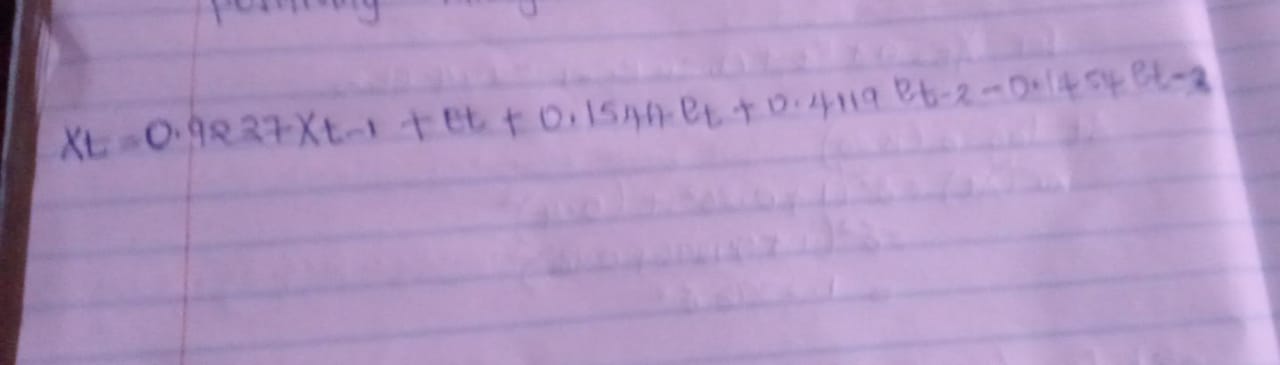 Xt = 0.9827Xt-1 + et + 0.1544et + 0.4119et-2 - 0.1454et-3